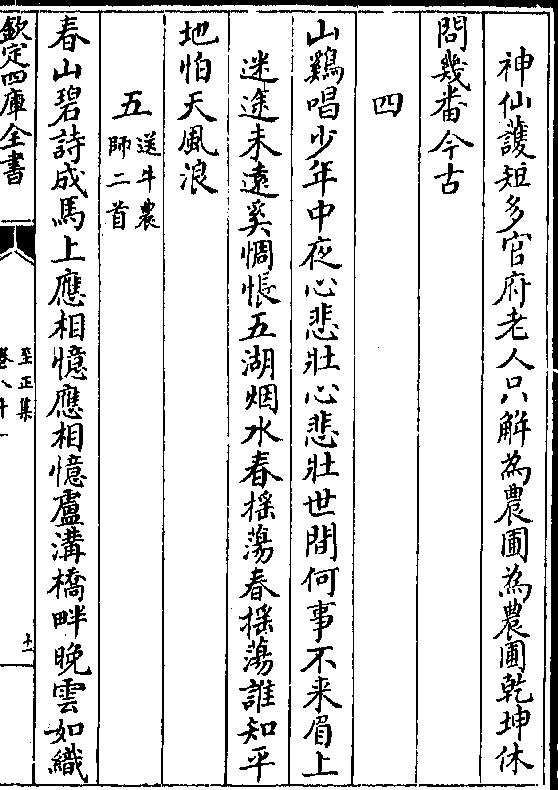 神仙護短多官府老人只解為農圃為農圃乾坤休
問幾番今古
四
山鷄唱少年中夜心悲壯心悲壯世間何事不来眉上
迷途未遠奚惆悵五湖烟水春揺蕩春揺蕩誰知平
地怕天風浪
五
送牛農
師二首
春山碧詩成馬上應相憶應相憶盧溝橋畔晚雲如織
欽定四庫全書
至正集
卷八十一
十一